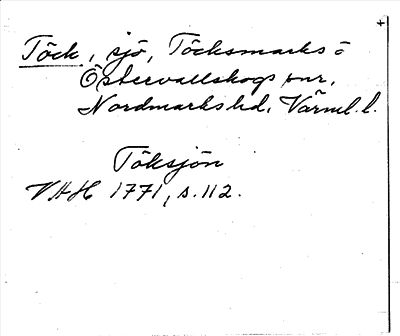 +
Töck, sjö, Töcksmarks o
Östervallskogs snr,
Nordmarks hd, Värml. l.
Töksjön
VAH 1771, s. 112.